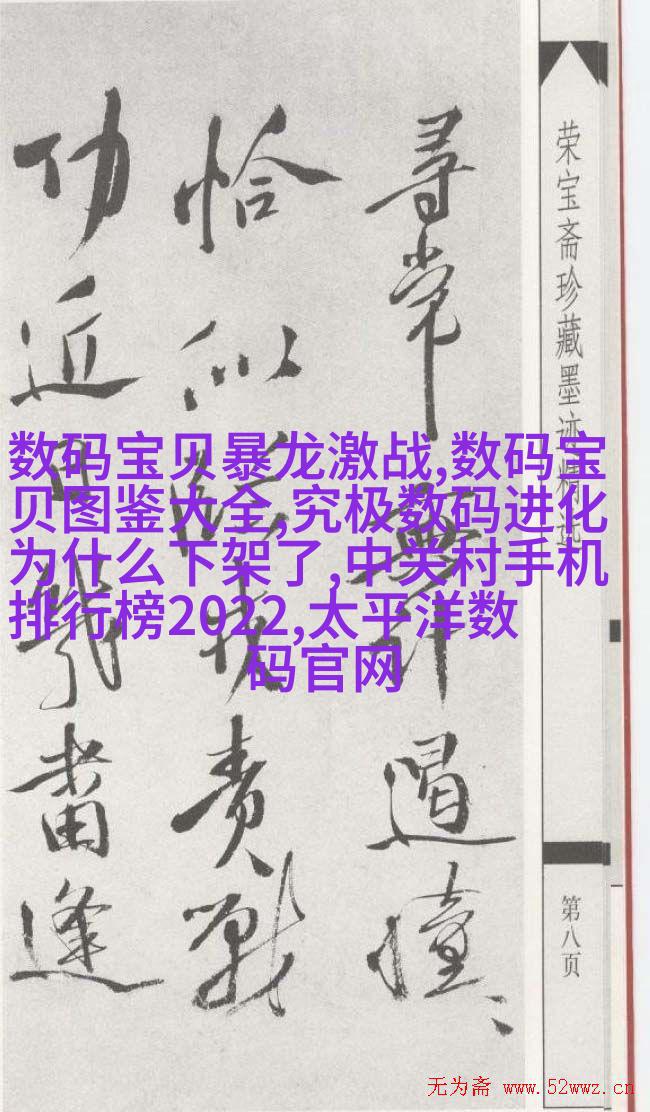 荣宝斋珍藏墨迹精选
第八页
尋常無計遏憧、
恰似責戰
功近日幾番逢
数码宝贝暴龙激战,数码宝
贝图鉴大全,究极数码进化
为什么下架了,中关村手机
排行榜2022,太平洋数
码官网
无为斋 www.52wwz.cn